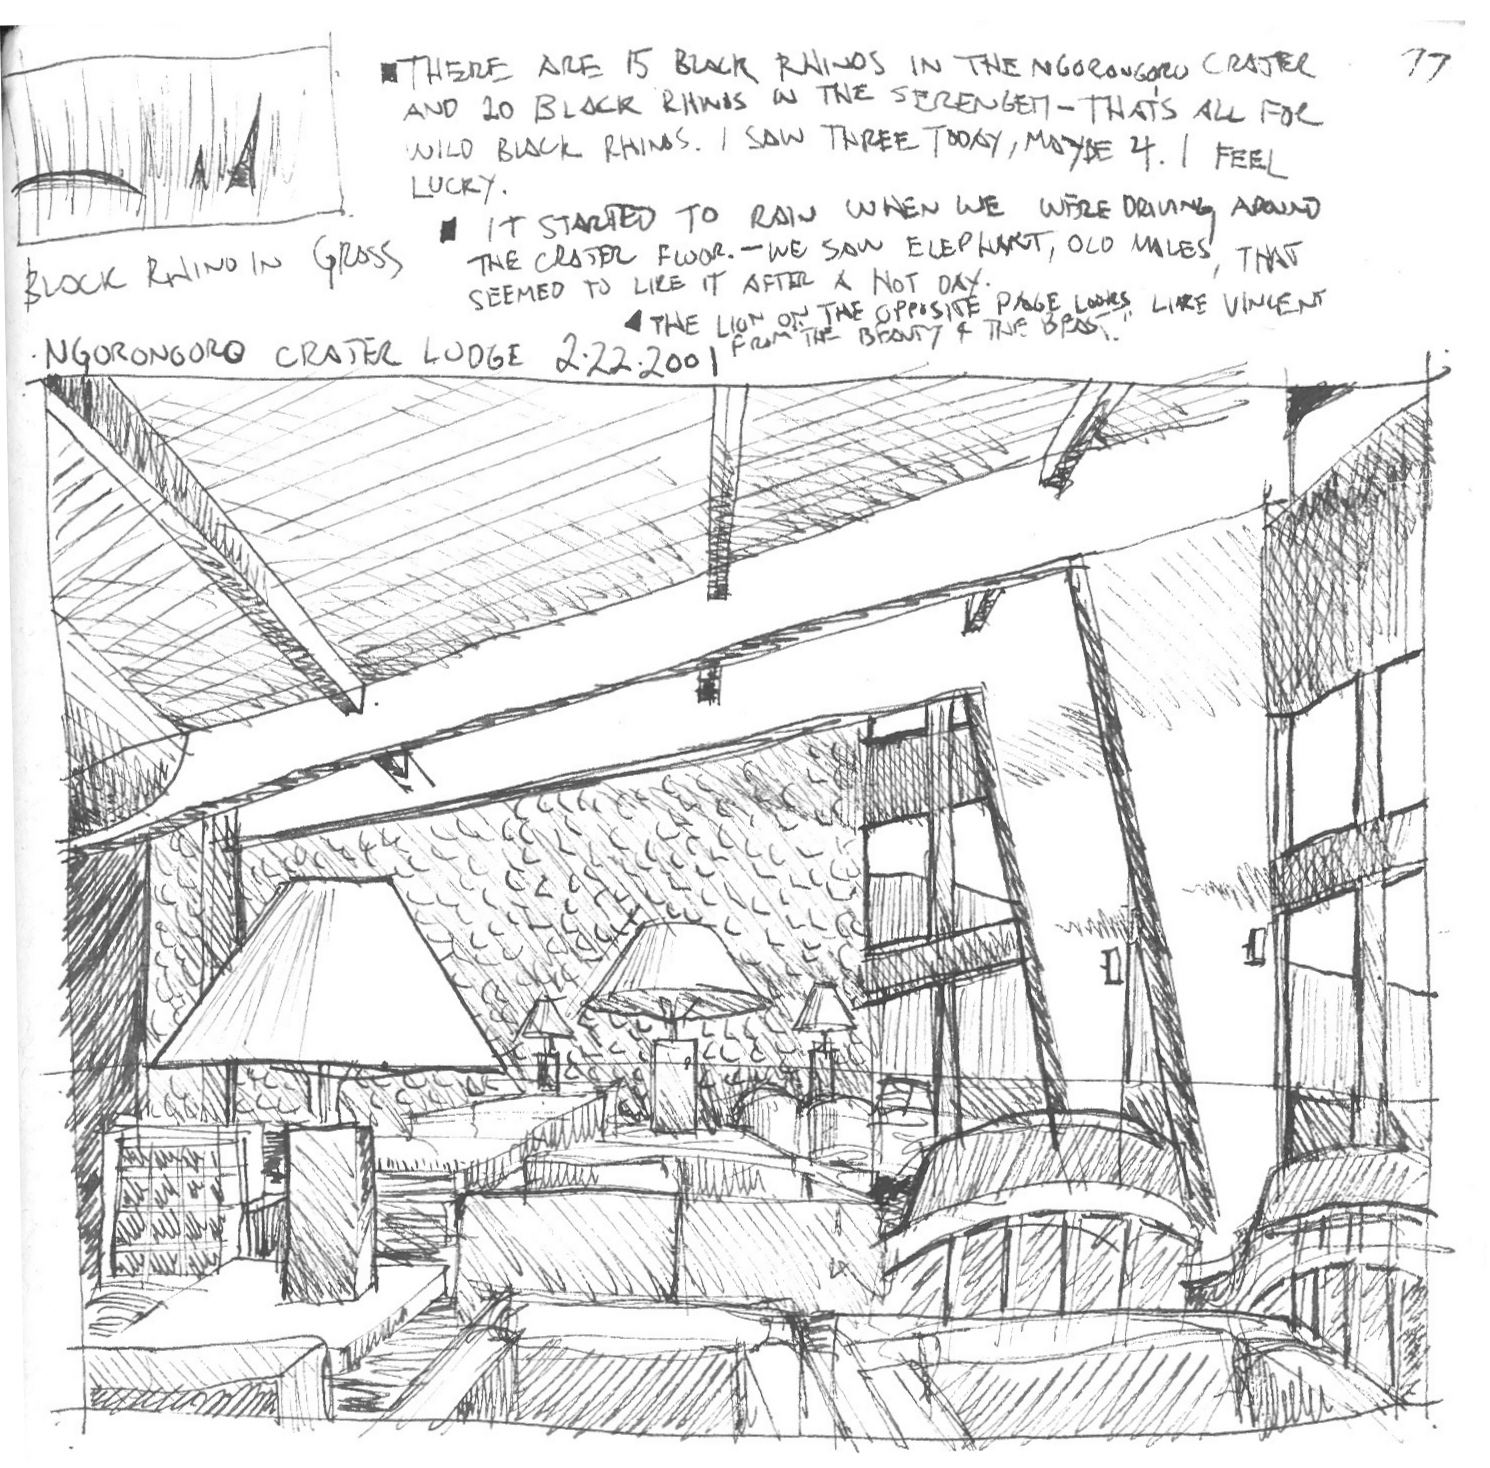 THERE ARE 15 BLACK RHINOS IN THE NGORONGORO CRATER
77
AND 20 BLACK RHINOS IN THE SERENGETI - THAT'S ALL FOR
WILD BLACK RHINOS. I SAW THREE TODAY, MAYBE 4. I FEEL
LUCKY.
IT STARTED TO RAIN WHEN WE WERE DRIVING AROUND
THE CRATER FLOOR. - WE SAW ELEPHANT, OLD MALES, THAT
SEEMED TO LIKE IT AFTER A HOT DAY.
THE LION ON THE OPPOSITE PAGE LOOKS LIKE VINCENT
FROM THE BEAUTY & THE BEAST.
BLACK RHINO IN GRASS
NGORONGORO CRATER LODGE 2.22.2001